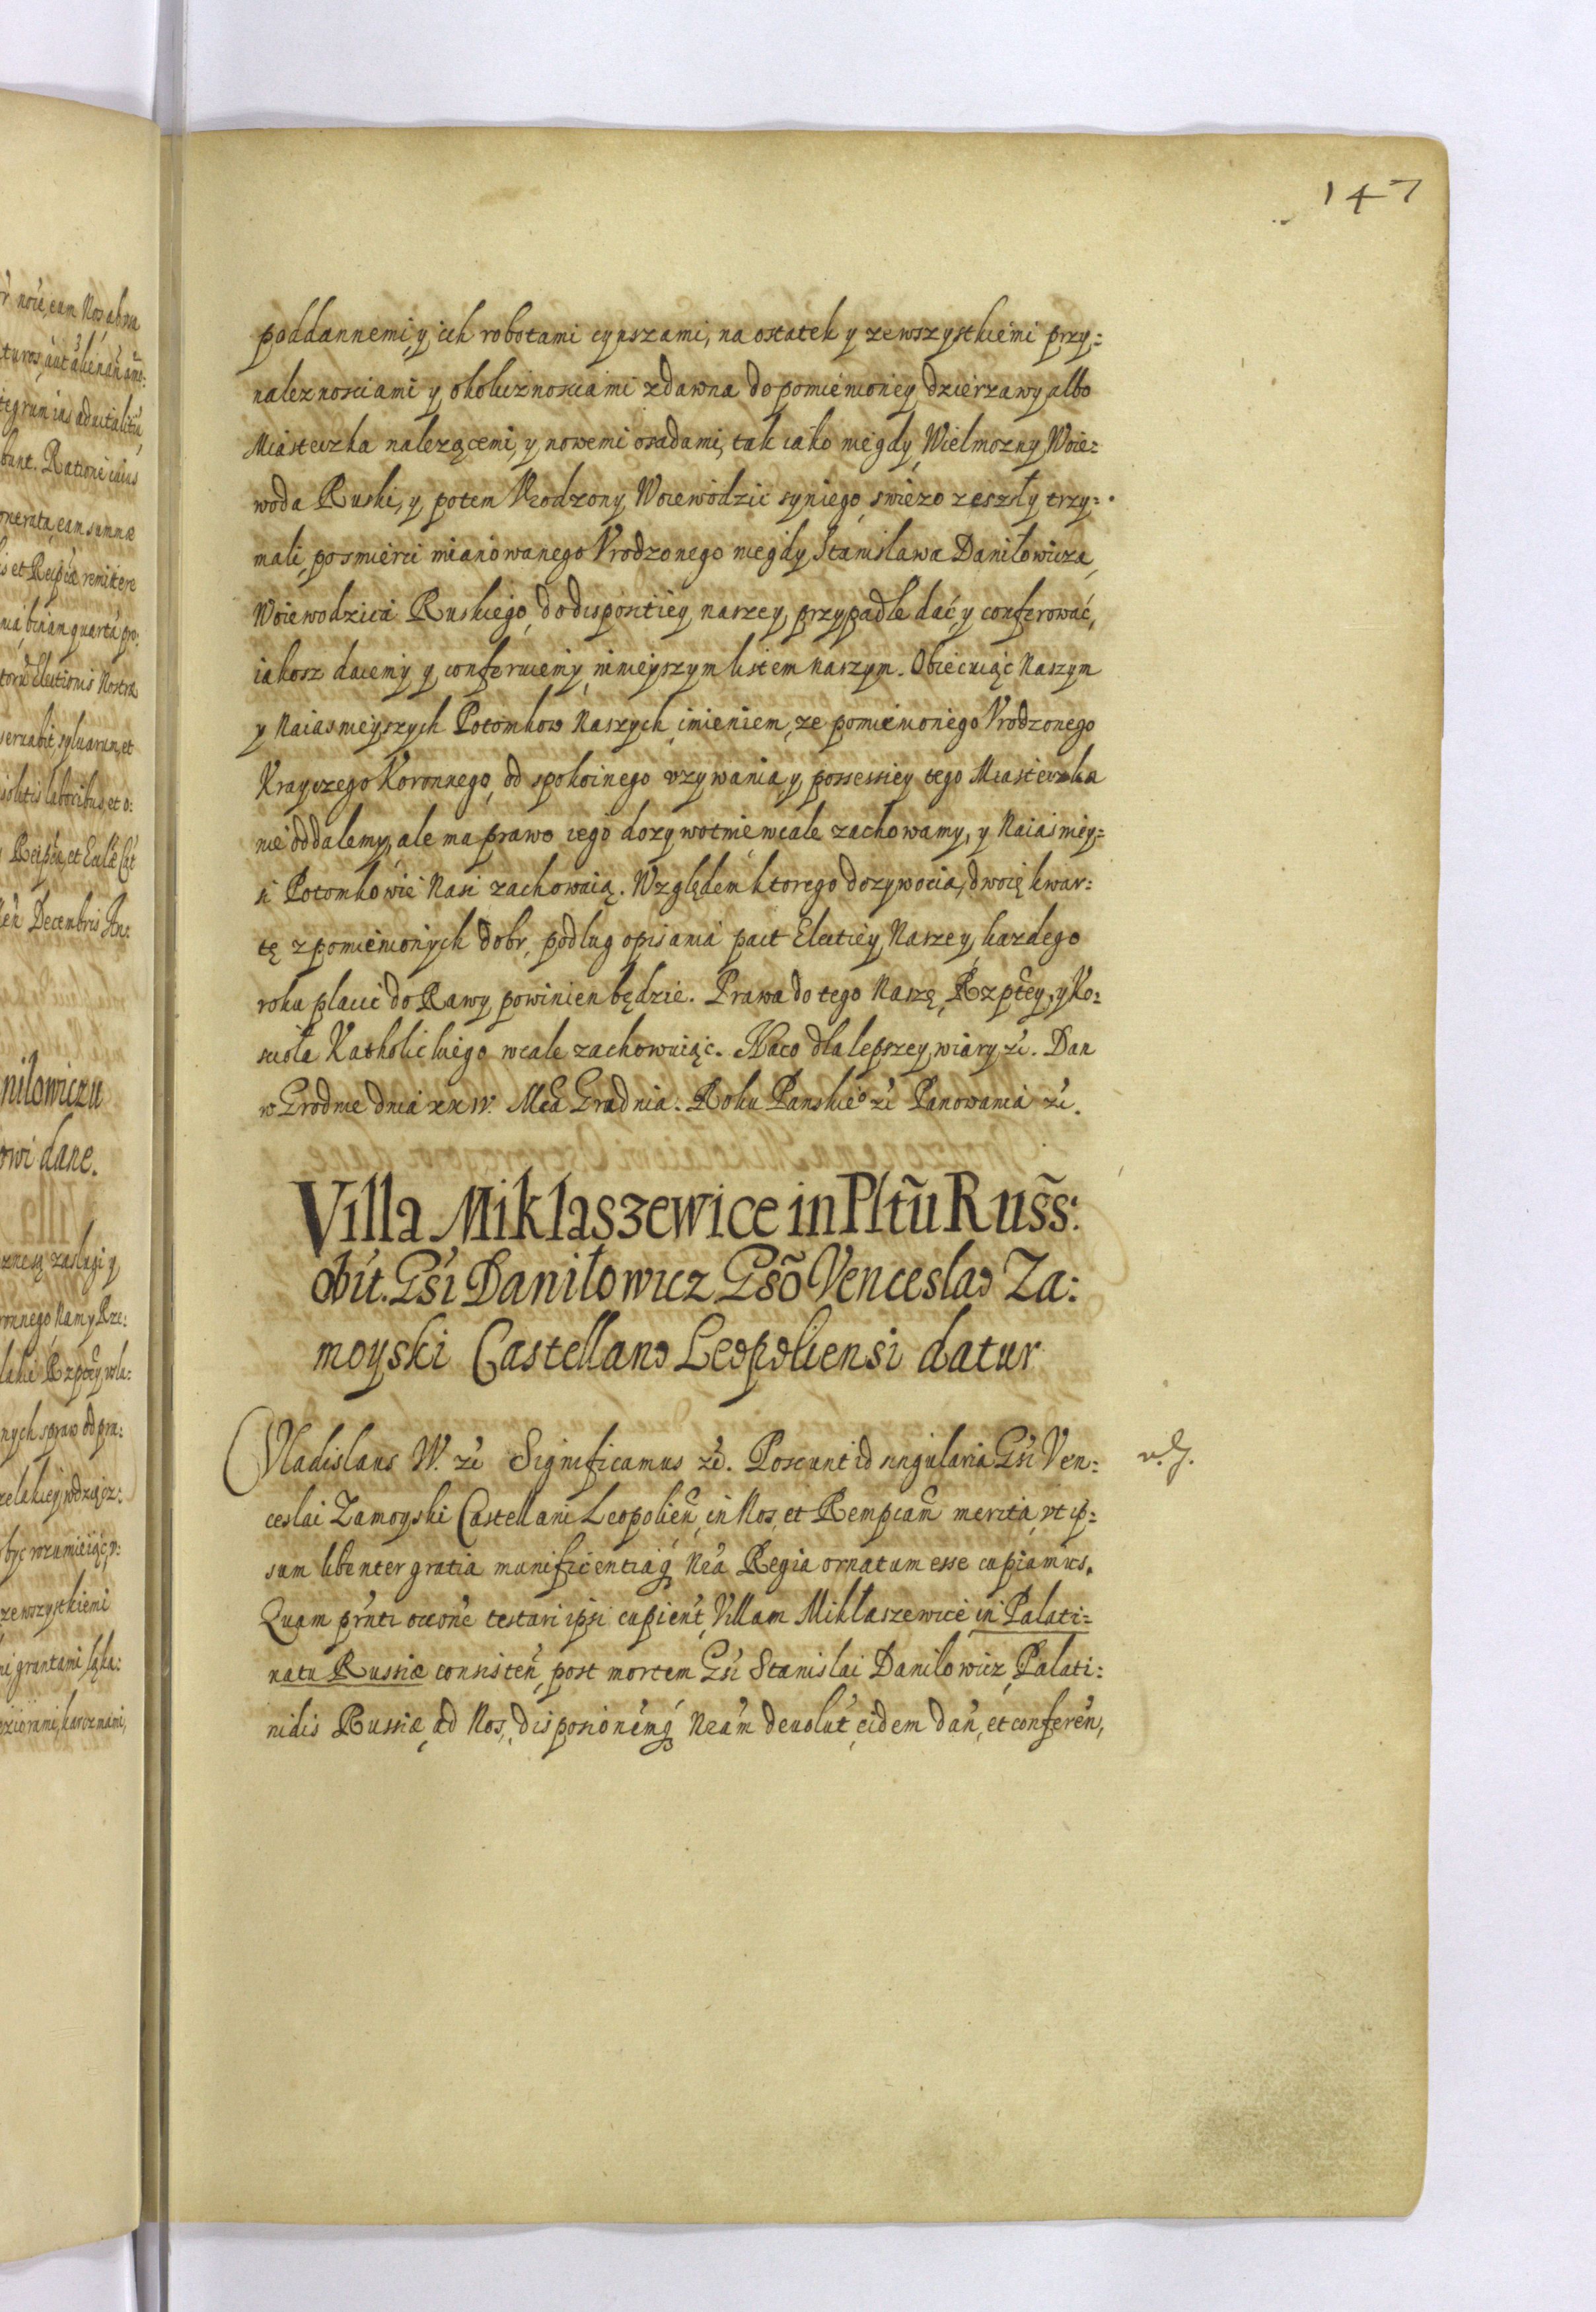 147
poddannemi, y ich robotami cynszami, na ostatek y ze wszystkiemi przy:
naleznosciami y okolicznosciami zdawna do pomienioney dzierzawy albo
Miasteczka nalezącemi, y nowemi osadami, tak iako niegdy Wielmozny Woie:
woda Ruski, y potem Vrodzony Woiewodzic syn iego swiezo zeszły trzy:
mali, po smierci mianowanego Vrodzonego niegdy Stanisława Daniłowicza,
Woiewodzica Ruskiego, do dispositiey naszey przypadłe dać, y conferować,
iakosz daiemy y conferuiemy ninieyszym listem naszym. Obiecuiąc Naszym
y Naiasnieyszych Potomkow Naszych imieniem, ze pomienionego Vrodzonego
Krayczego Koronnego, od spokoinego vzywania, y possessiey tego Miasteczka
nie oddalemy, ale ma prawo iego dozywotnie wcale zachowamy, y Naiasniey:
si Potomkowie Nasi zachowaią. Względem ktorego dozywocia, dwoię kwar:
tę z pomienionych dobr, podlug opisania pact Electiey Naszey, kazdego
roku placić do Rawy powinien będzie. Prawa do tego Naszę, Rzptey, y Ko:
scioła Katholickiego wcale zachowuiąc. Na co dla lepszey wiary etc. Dan
w Grodnie dnia XXIV. Mca Grudnia. Roku Panskieo etc Panowania etc.
Villa Miklaszewice in Pltũ Russ̃:
obit. Gsi Daniłowicz Gsõ Venceslao Za:
moyski Castellano Leopoliensi datur
Vladislaus IV. etc Significamus etc. Poscunt id singularia Gsi Ven:
ceslai Zamoyski Castellani Leopolien, in Nos, et Rempcam merita, vt ip:
sum libenter gratia munificentiaq Nra Regia ornatum esse cupiamus.
Quam prnti occone testari ipsi cupient, Villam Mikłaszewice in Palati:
natu Russiæ consisten, post mortem Gsi Stanislai Daniłowicz, Palati:
nidis Russiæ, ad Nos, disposionemq Nram deuolut, eidem dan, et conferen,